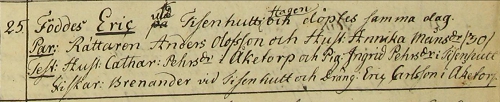 25. Föddes Eric uti Fisenhutt Hagen och döptes samma dag.
Par: Råttaren Anders Olofsson och Hust: Annika Månsdr /30/
Test: Hust: Cathar: Pehrsdr i Åketorp och Pig: Ingrid Pehrsdr i Fisenhutt
Fiskar: Brenander vid Fisenhutt och Dräng: Eric Carlsson i Åketorp.